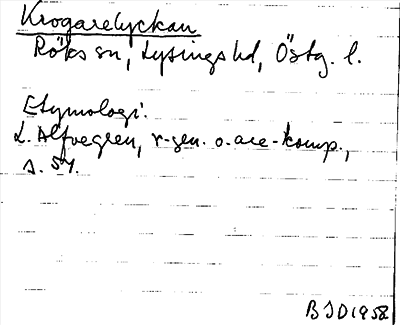 Krogarelyckan
Röks sn, Lysings hd, Östg. l.
Etymologi:
L. Alfvegren, r-gen. o. are-komp.,
s. 54.
BJD 1958